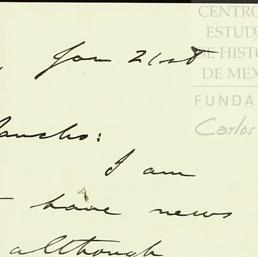 , Jan 21st
Pancho:
I am
have news
although
CENTRO
ESTUDI
DE HISTO
DE MEX
FUNDA
Carlos